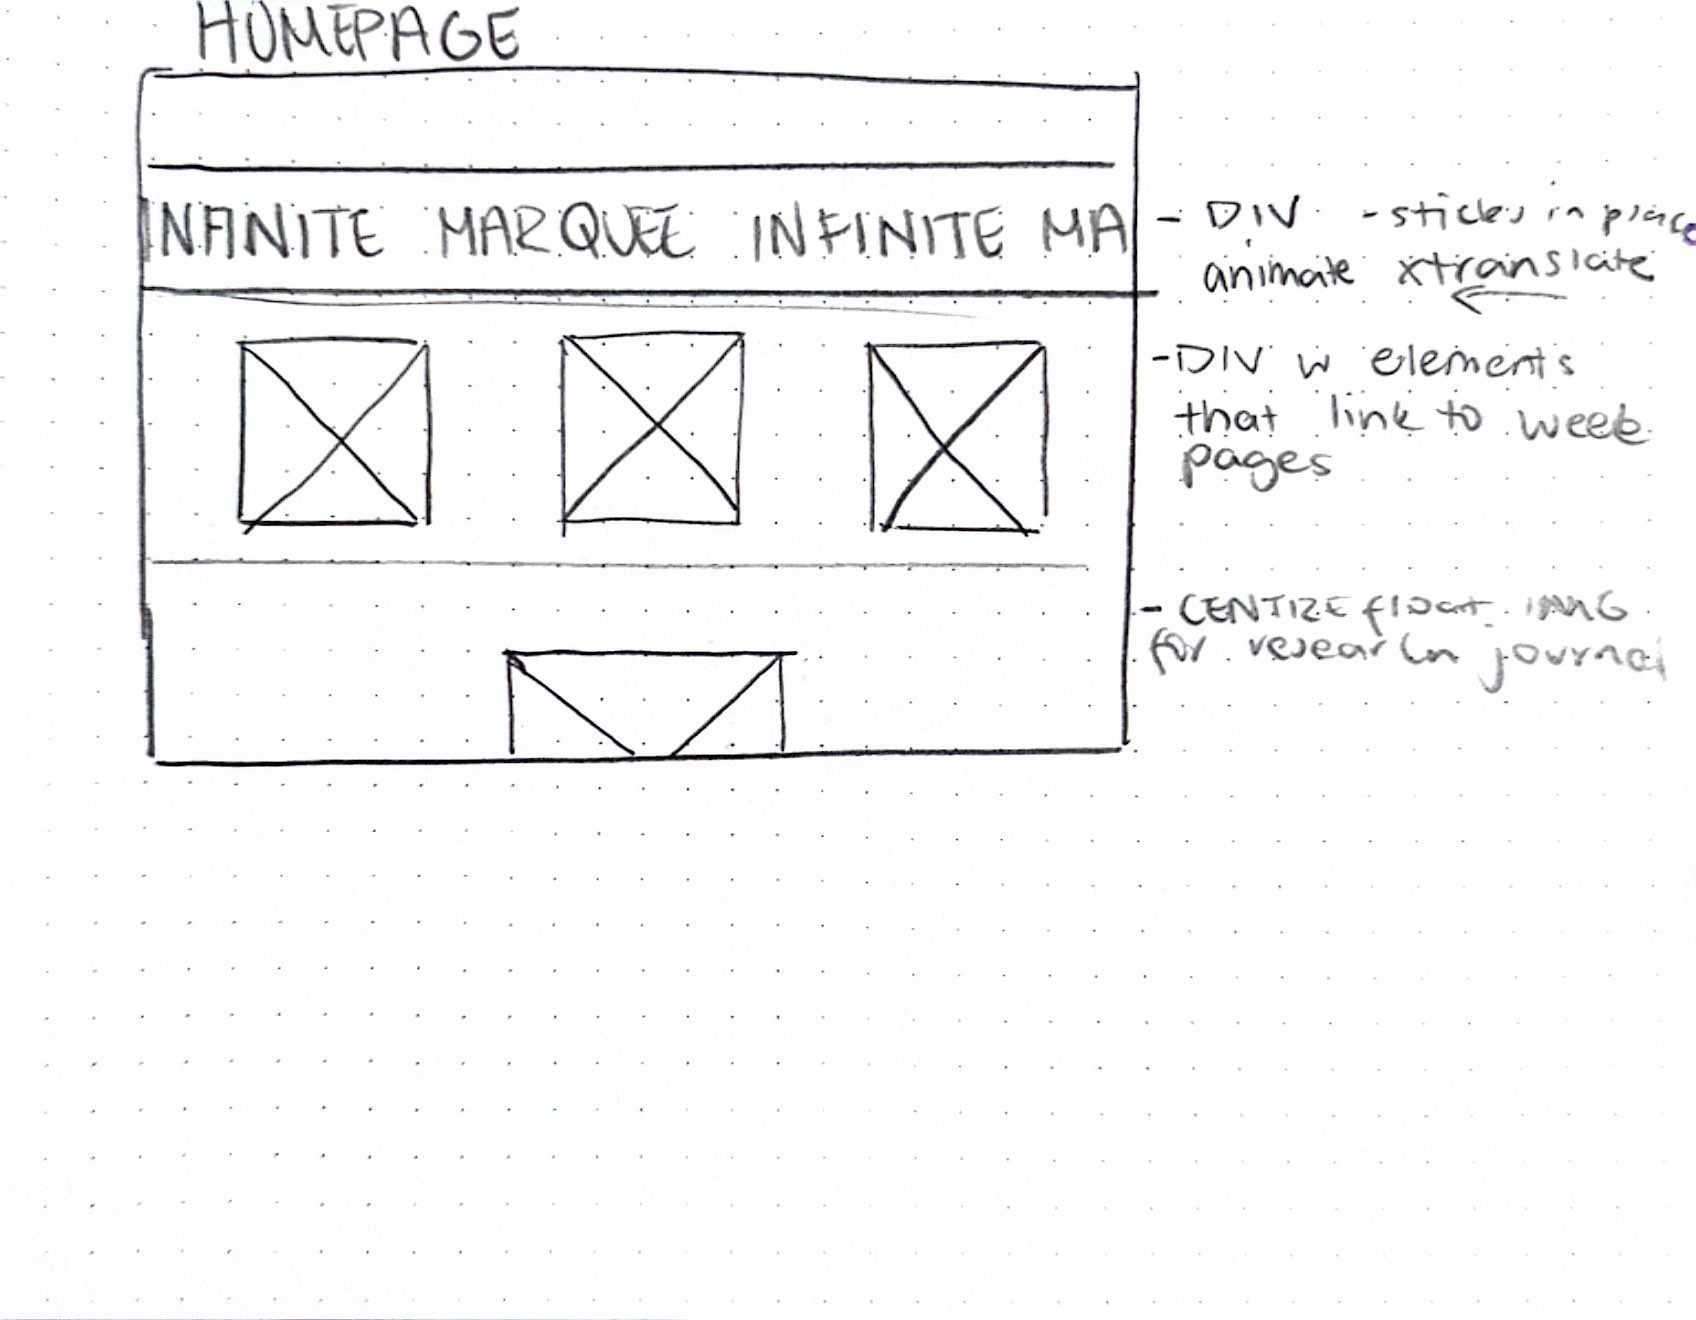 HOMEPAGE
INFINITE MARQUEE INFINITE MA
- DIV - sticks in place
animate xtranslate
- DIV w elements
that link to week
pages
- CENTRE float IMG
for research journal